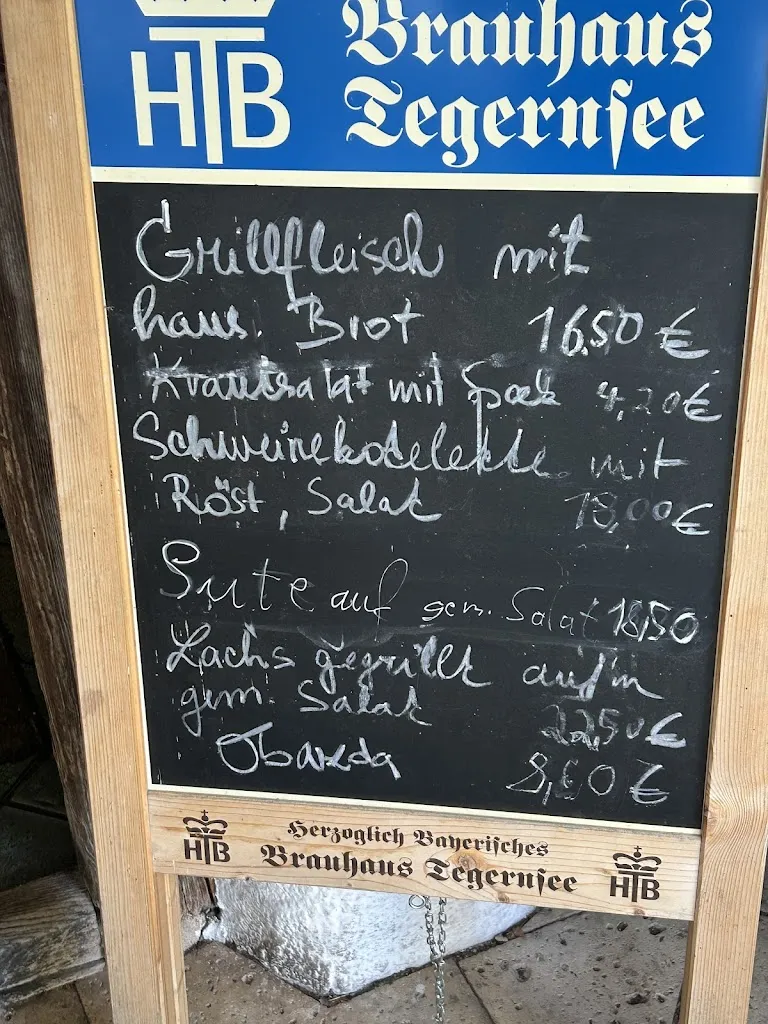 HTB
Brauhaus
Tegernsee
Grillfleisch mit
haus. Brot 16,50 €
Krautsalat mit Speck 4,20 €
Schweinekotelekte mit
Röst, Salat 18,00 €
Pute auf gem. Salat 18,50
Lachs gegrillt auf'm
gem. Salat 22,50 €
Obazda 8,60 €
HTB Herzoglich Bayerisches HTB
Brauhaus Tegernsee